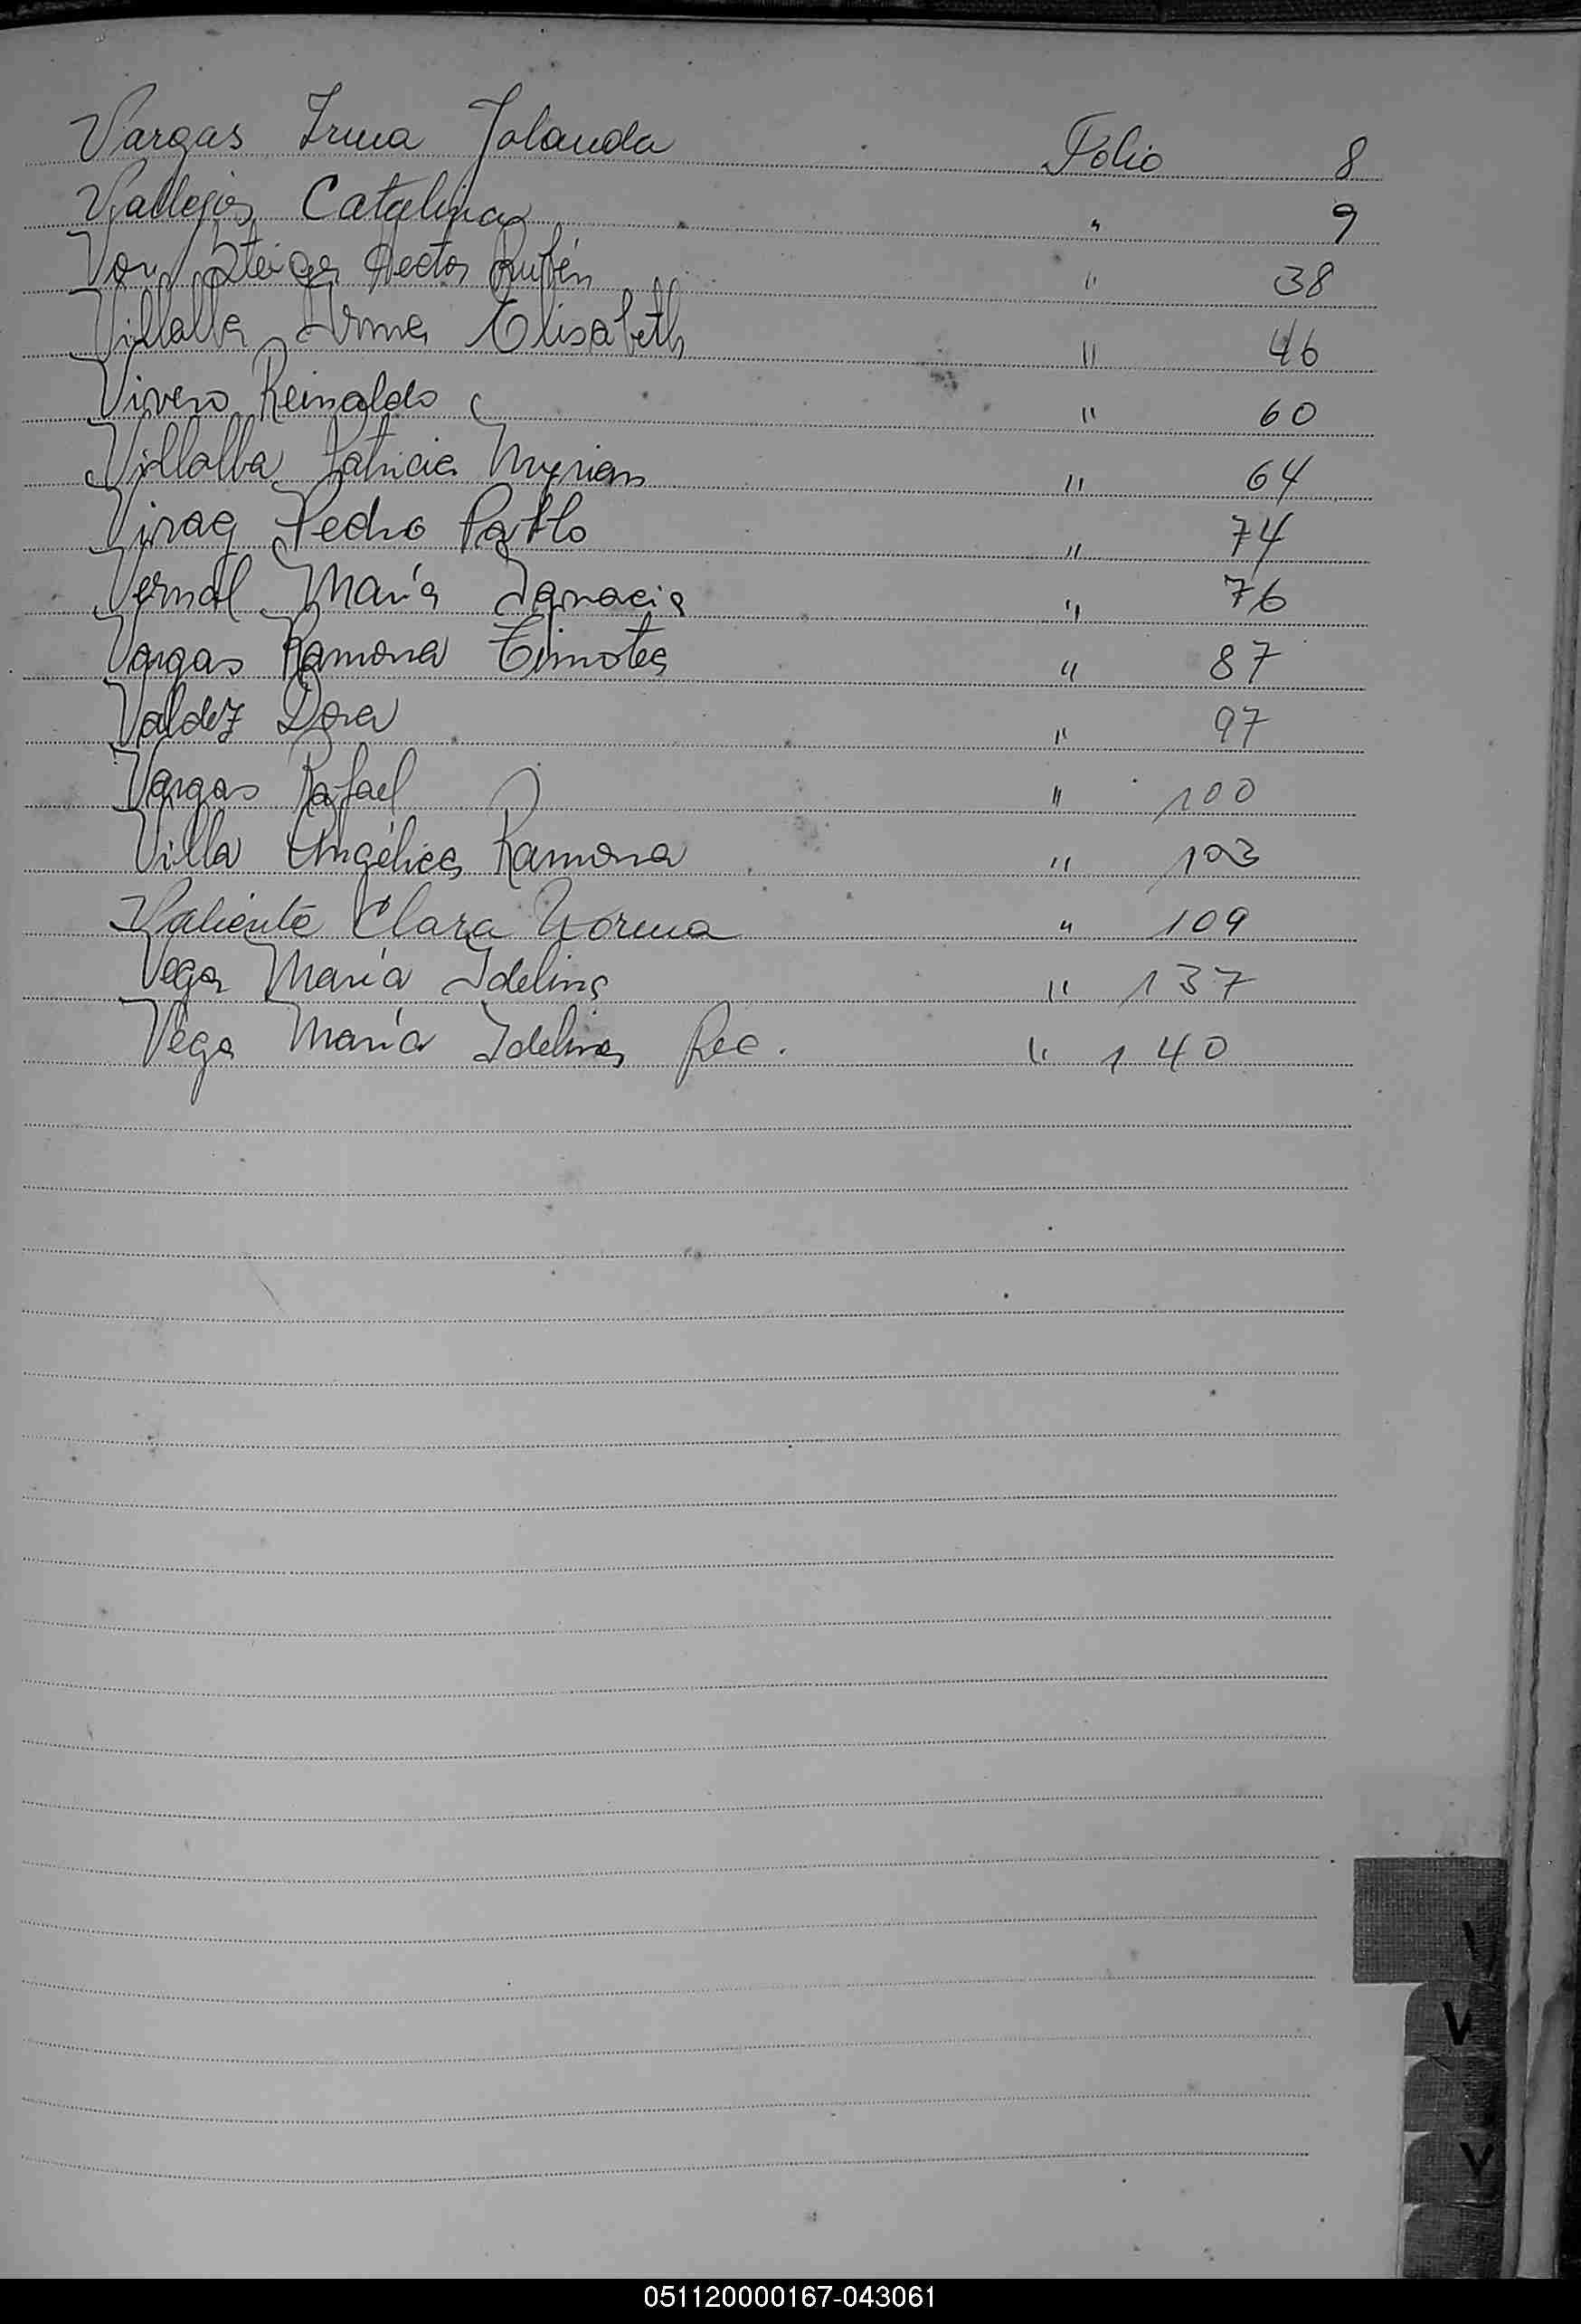 Vargas Irma Jolanda Folio 8
Vallejos Catalina " 9
Von Steiger Hector Rubén " 38
Villalba Irma Elisabeth " 46
Vivero Reinaldo " 60
Villalba Patricia Myrian " 64
Virag Pedro Pablo " 74
Vernal María Ignacia " 76
Vargas Ramona Timotea " 87
Valdez Dora " 97
Vargas Rafael " 100
Villa Angélica Ramona " 103
Valiente Clara Norma " 109
Vega María Idelina " 137
Vega María Idelina Rec. " 140
V
V
051120000167-043061